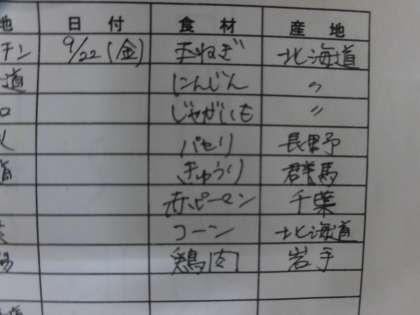 地 日付 食材 産地
チン 9/22(金) 玉ねぎ 北海道
道 にんじん 〃
ロ じゃがいも 〃
パセリ 長野
きゅうり 群馬
赤ピーマン 千葉
コーン 北海道
鶏肉 岩手